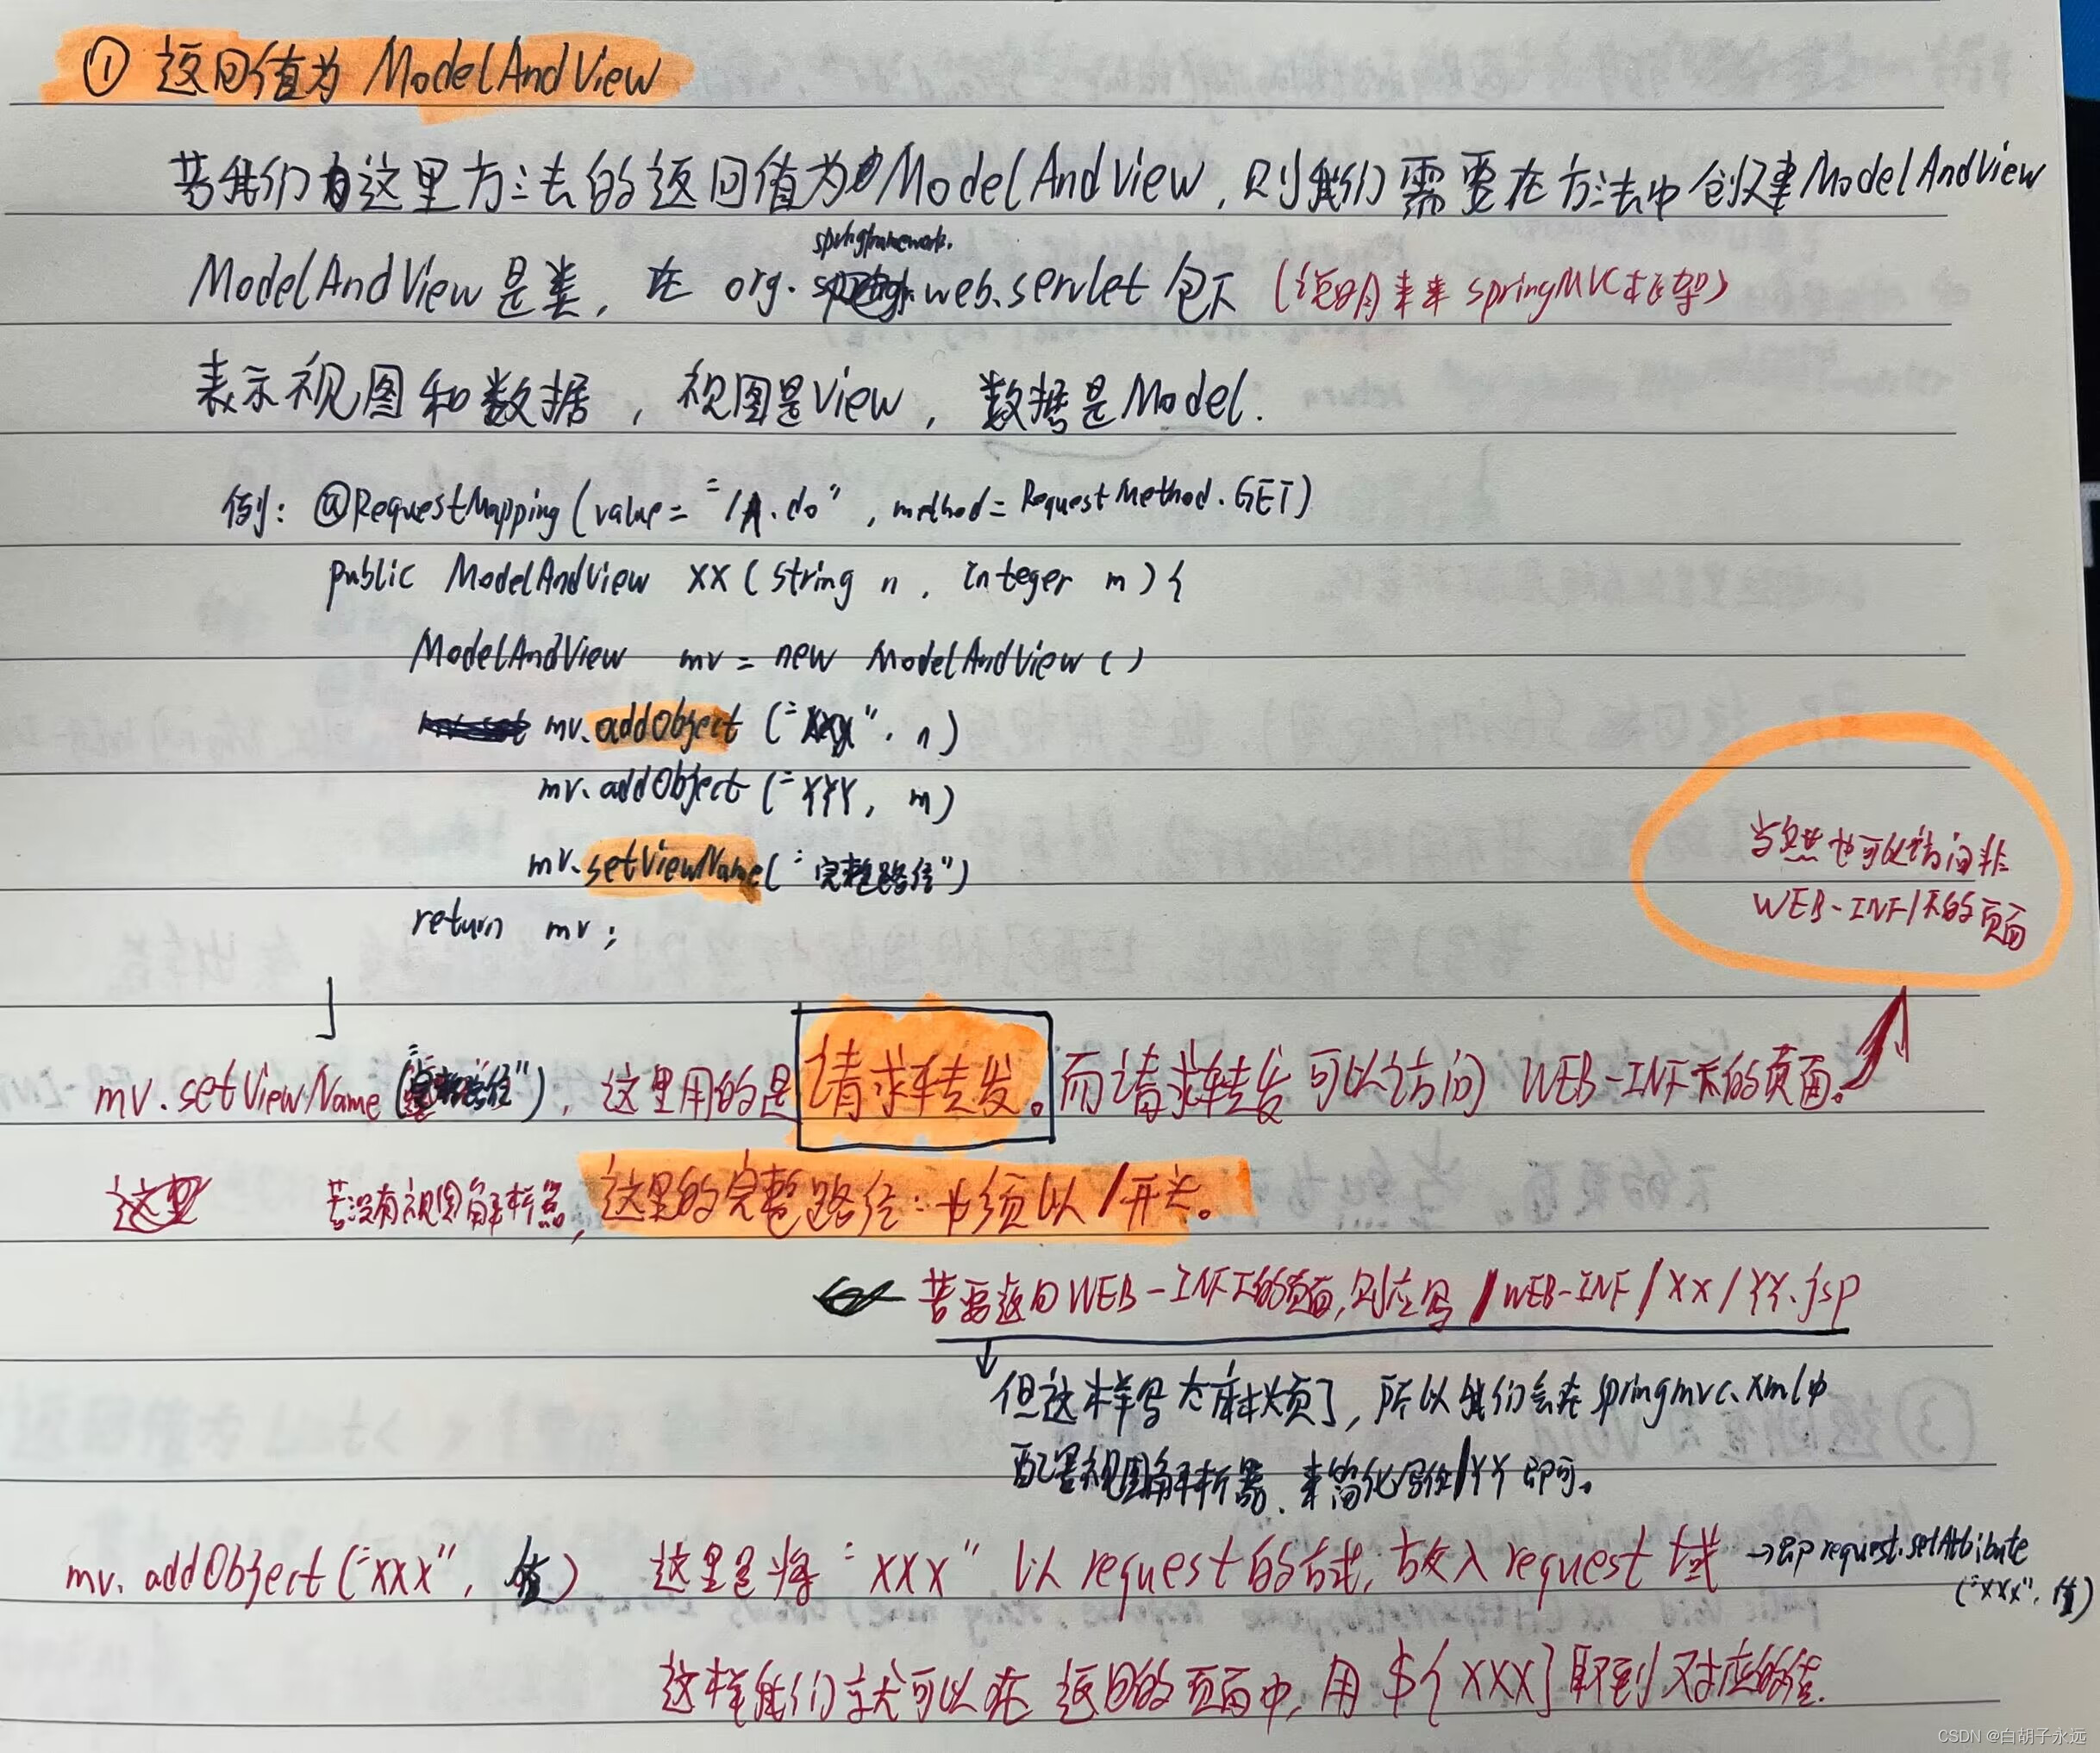 ① 返回值为 ModelAndView
若我们这里方法的返回值为 ModelAndView，则我们需要在方法中创建ModelAndView
ModelAndView是类，在 org.springframework.web.servlet包下（说明来来springMVC框架）
表示视图和数据，视图是View，数据是Model.
例：@RequestMapping(value="/A.do", method=RequestMethod.GET)
public ModelAndView XX(string n, integer m){
ModelAndView mv = new ModelAndView()
mv.addObject("XXX", n)
mv.addObject("YYY, m)
mv.setViewName("完整路径")
return mv;
当然也可以访问非
WEB-INF下的页面
mv.setViewName("完整路径")，这里用的是请求转发。而请求转发可以访问 WEB-INF下的页面。
若没有视图解析器，这里的完整路径：必须以/开头。
若要返回WEB-INF下的页面，则应写 /WEB-INF/XX/YY.jsp
但这样写太麻烦了，所以我们会在springmvc.xml中
配置视图解析器，来简化写你/YY即可。
mv.addObject("XXX", 值) 这里是将"XXX"以request的方式，放入request域 →即request.setAttibute
("XXX", 值)
这样我们就可以在返回的页面中，用 ${XXX}取到对应的值.
CSDN @白胡子永远